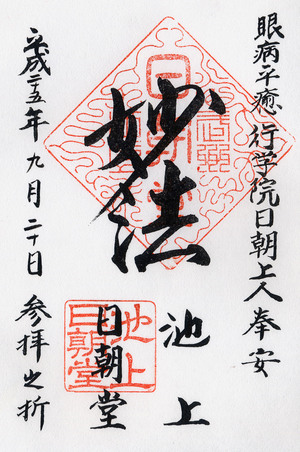 眼病平癒 行学院日朝上人奉安
妙法
池上
日朝堂
平成二十五年九月二十日 参拝之折
池上
日朝堂